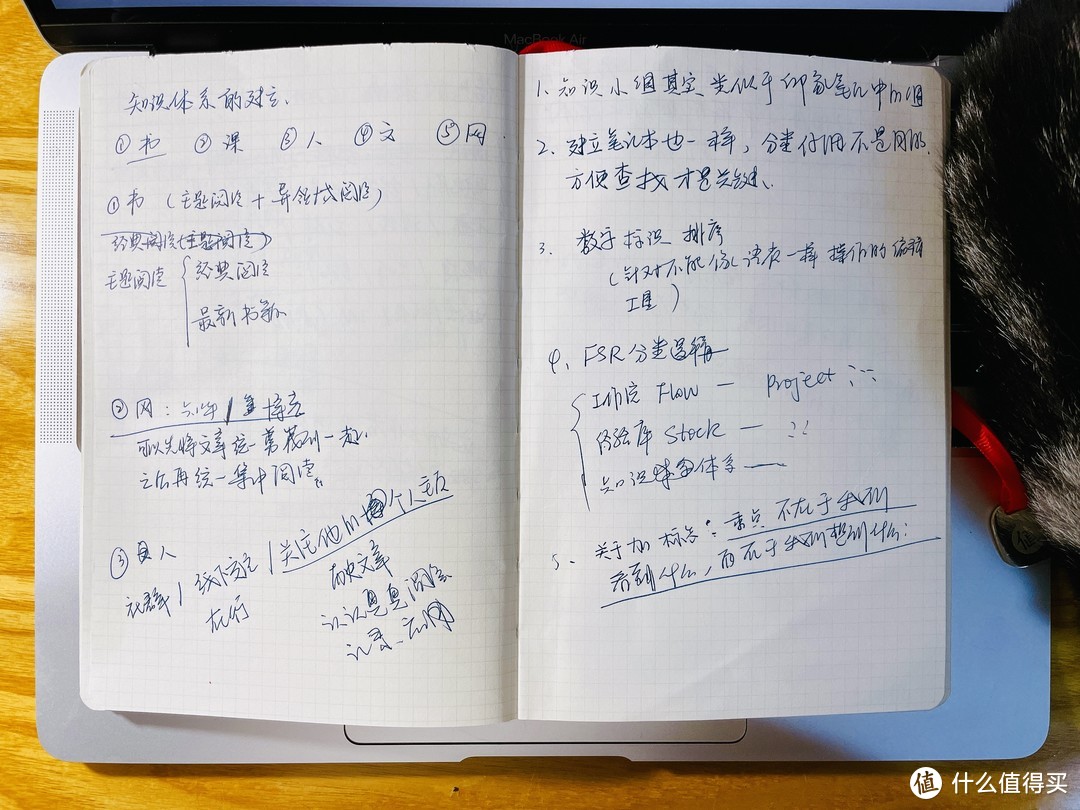 MacBook Air
知识体系的建立、
① 书 ② 课 ③ 人 ④ 文 ⑤ 网
① 书 (主题阅读 + 异领域阅读)
经典阅读(主题阅读)
主题阅读
经典阅读
最新书籍
② 网: 知乎 / 博客
可以先将文章统一剪藏到一起、
之后再统一集中阅读。
③ 人
社群 / 线下 / 关注他的个人主页
在行
文章
认认真真阅读
记录、应用
1、知识小组其实类似于印象笔记中的组
2、建立笔记本也一样, 分类作用不是网的,
方便查找才是关键、
3、数字标识 排序
(针对不能像 一样操作的
工具)
4、FSR 分类逻辑
工作流 Flow — Project
经验库 Stock —
知识体系 —
5、关于加标签: 重点不在于我们
看到什么, 而在于我们想到什么:
值
值 什么值得买